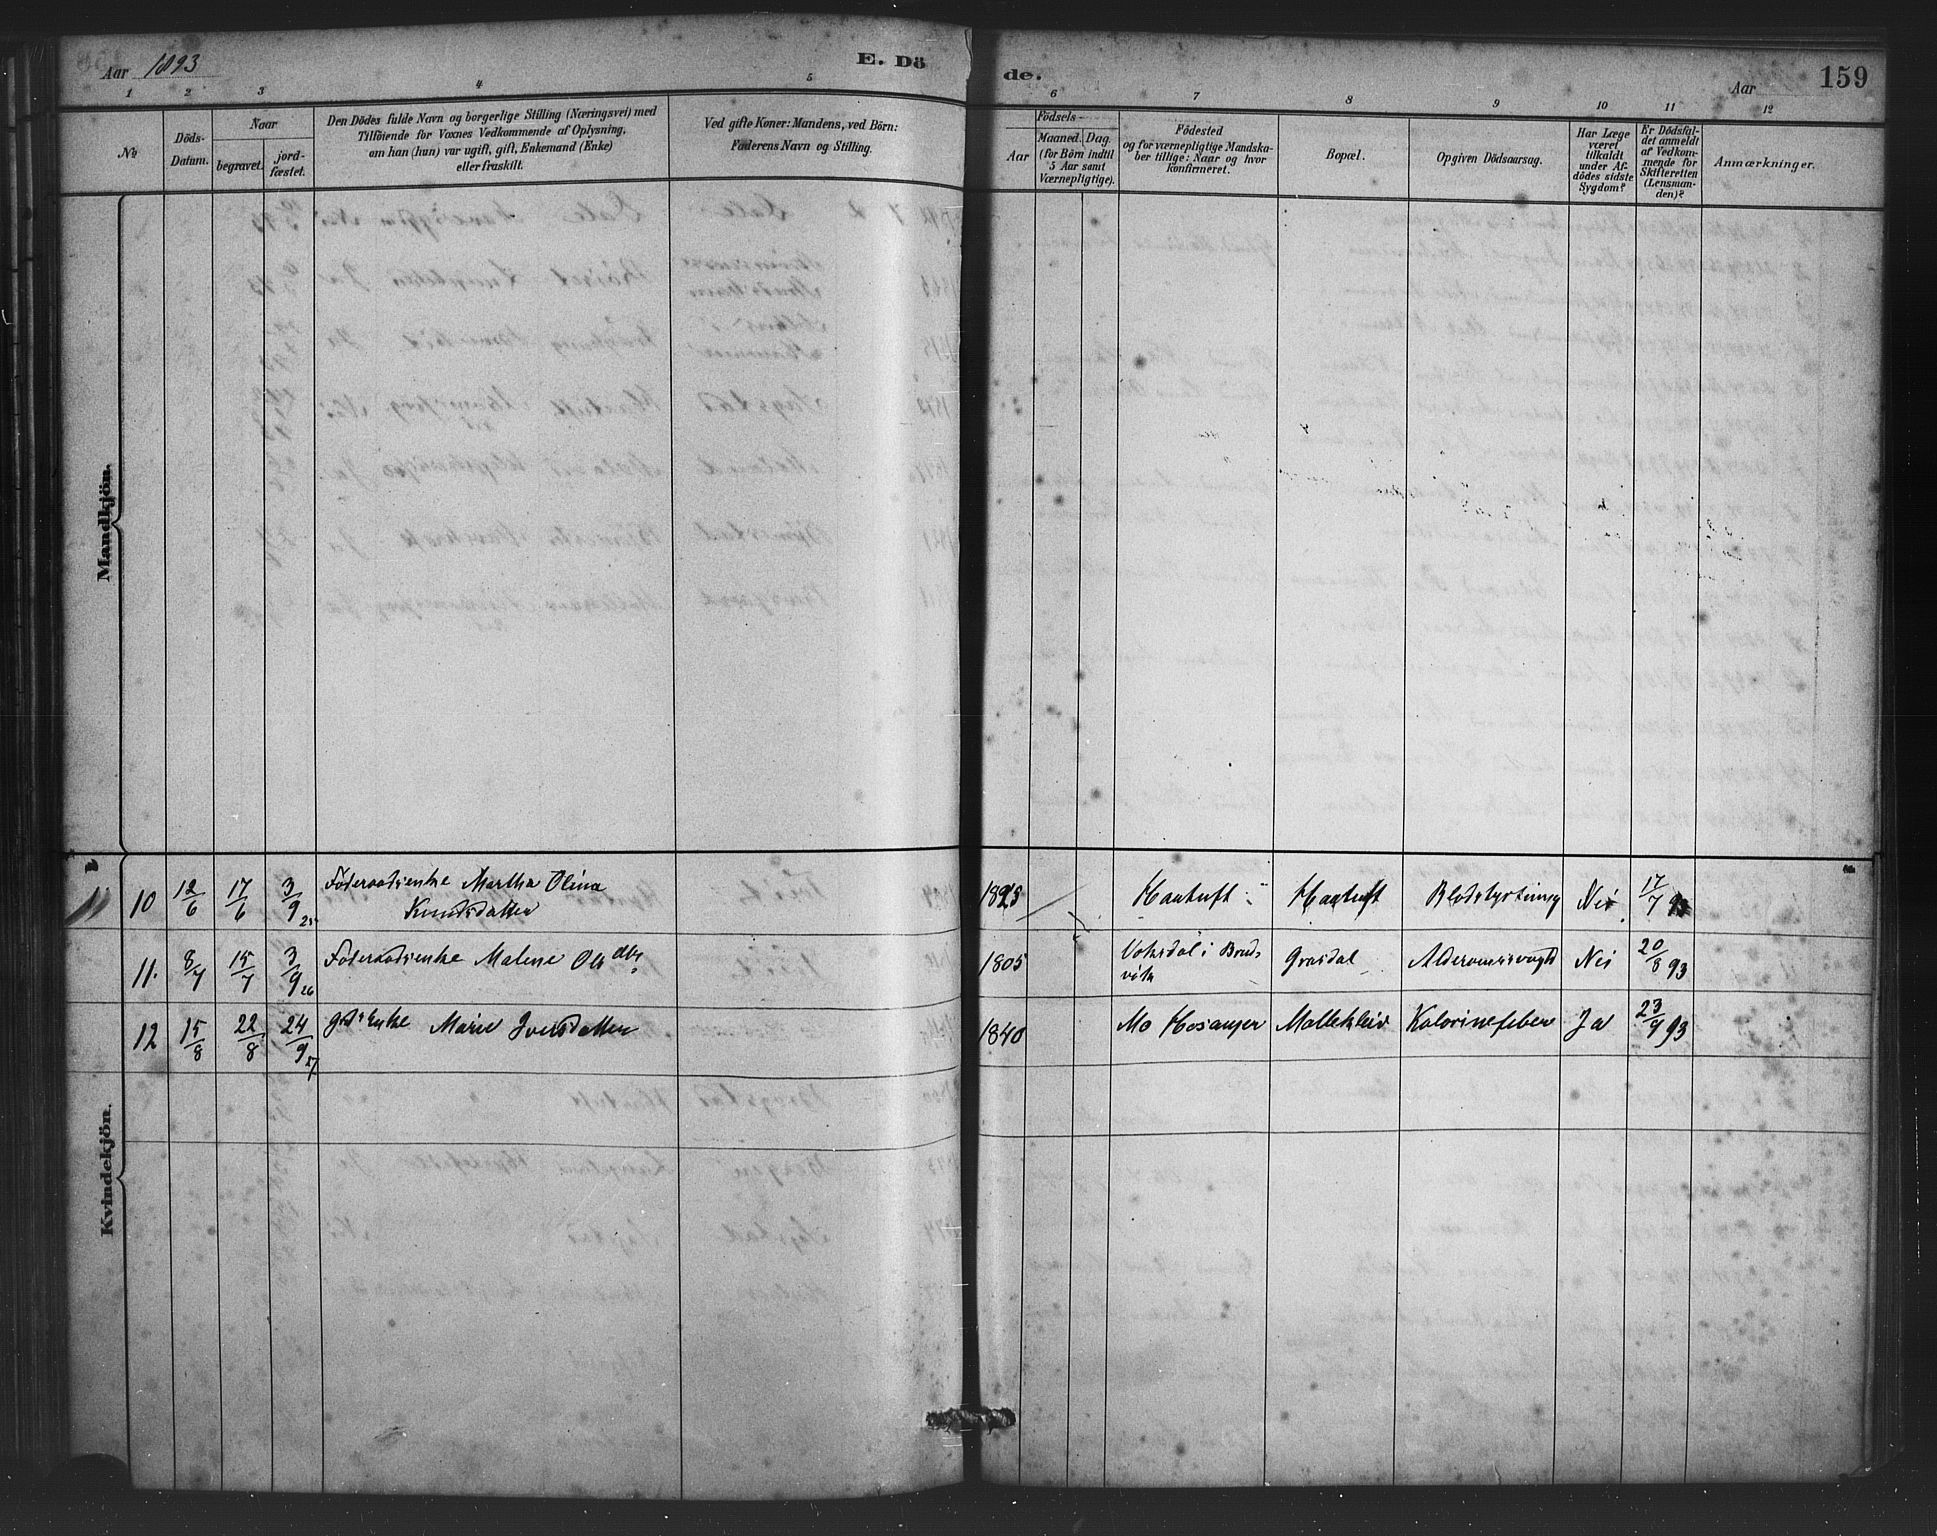 Aar 1893
E. Dö
de.
Aar
159
1 2 3 4 5 6 7 8 9 10 11 12
No
Döds-
Datum.
Naar
begravet.
jord-
fæstet.
Den Dödes fulde Navn og borgerlige Stilling (Næringsvei) med
Tilföiende for Voxnes Vedkommende af Oplysning,
om han (hun) var ugift, gift, Enkemand (Enke)
eller fraskilt.
Ved gifte Koner: Mandens, ved Börn:
Faderens Navn og Stilling.
Födsels-
Aar
Maaned. Dag.
(for Börn indtil
5 Aar samt
Værnepligtige).
Födested
og for værnepligtige Mandska-
ber tillige: Naar og hvor
konfirmeret.
Bopæl.
Opgiven Dödsaarsag.
Har Læge
været
tilkaldt
under Af-
dödes sidste
Sygdom?
Er Dödsfal-
det anmeldt
af Vedkom-
mende for
Skifteretten
(Lensman-
den)?
Anmærkninger.
Mandkjön.
Kvindekjön.
10 12/6 17/6 3/9 25 Föderaadsenke Martha Olina
Knudsdatter
1823 Haatuft Haatuft Blodstyrtning Nei 17/7 93
11. 8/7 15/7 3/9 26 Föderaadsenke Malene Olsdtr
1805 i Bruds-
vik Alderdomssvaghd Nei 20/8 93
12 15/8 22/8 24/9 27 Enke Marie Iversdatter
1840 Mo Hosanger Mollekleiv Ja 23/9 93